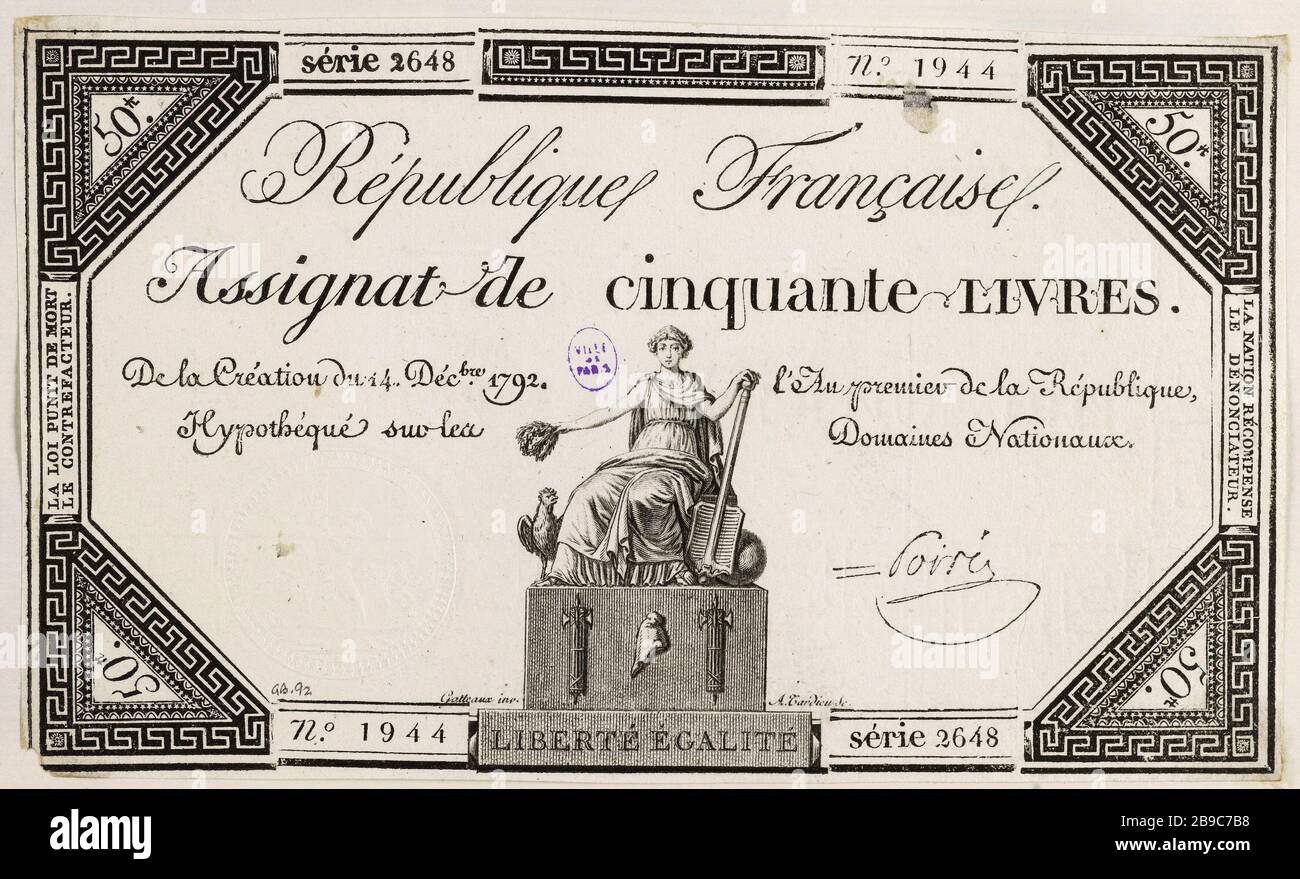 série 2648
N.o 1944
50lt.
50lt.
République Française.
Assignat de cinquante LIVRES.
VILLE DE PARIS
De la Création du 14. Décbre 1792. l'An premier de la République,
Hypothéqué sur les Domaines Nationaux.
LA LOI PUNIT DE MORT
LE CONTREFACTEUR.
LA NATION RÉCOMPENSE
LE DÉNONCIATEUR.
Poiré
50lt.
50lt.
GB.92
Gatteaux inv.
A. Tardieu Sc.
N.o 1944
LIBERTÉ ÉGALITÉ
série 2648
alamy
alamy
Image ID: 2B9C7B8
www.alamy.com